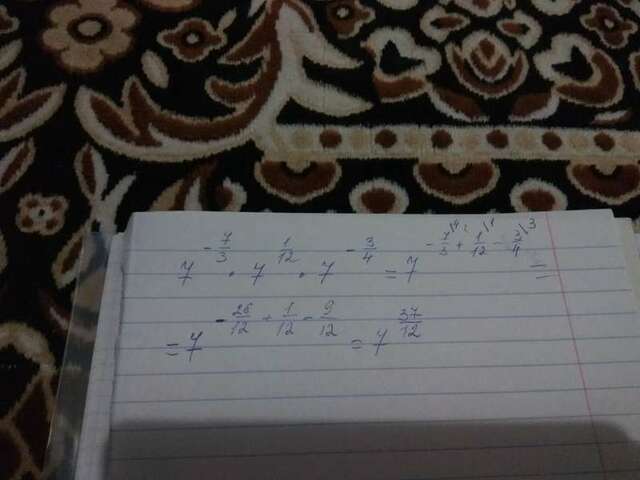 7^{-\frac{7}{3}} \cdot 7^{\frac{1}{12}} \cdot 7^{-\frac{3}{4}} = 7^{-\frac{7}{3}^{\backslash 4} + \frac{1}{12}^{\backslash 1} - \frac{3}{4}^{\backslash 3}} =
= 7^{-\frac{28}{12} + \frac{1}{12} - \frac{9}{12}} = 7^{\frac{37}{12}}